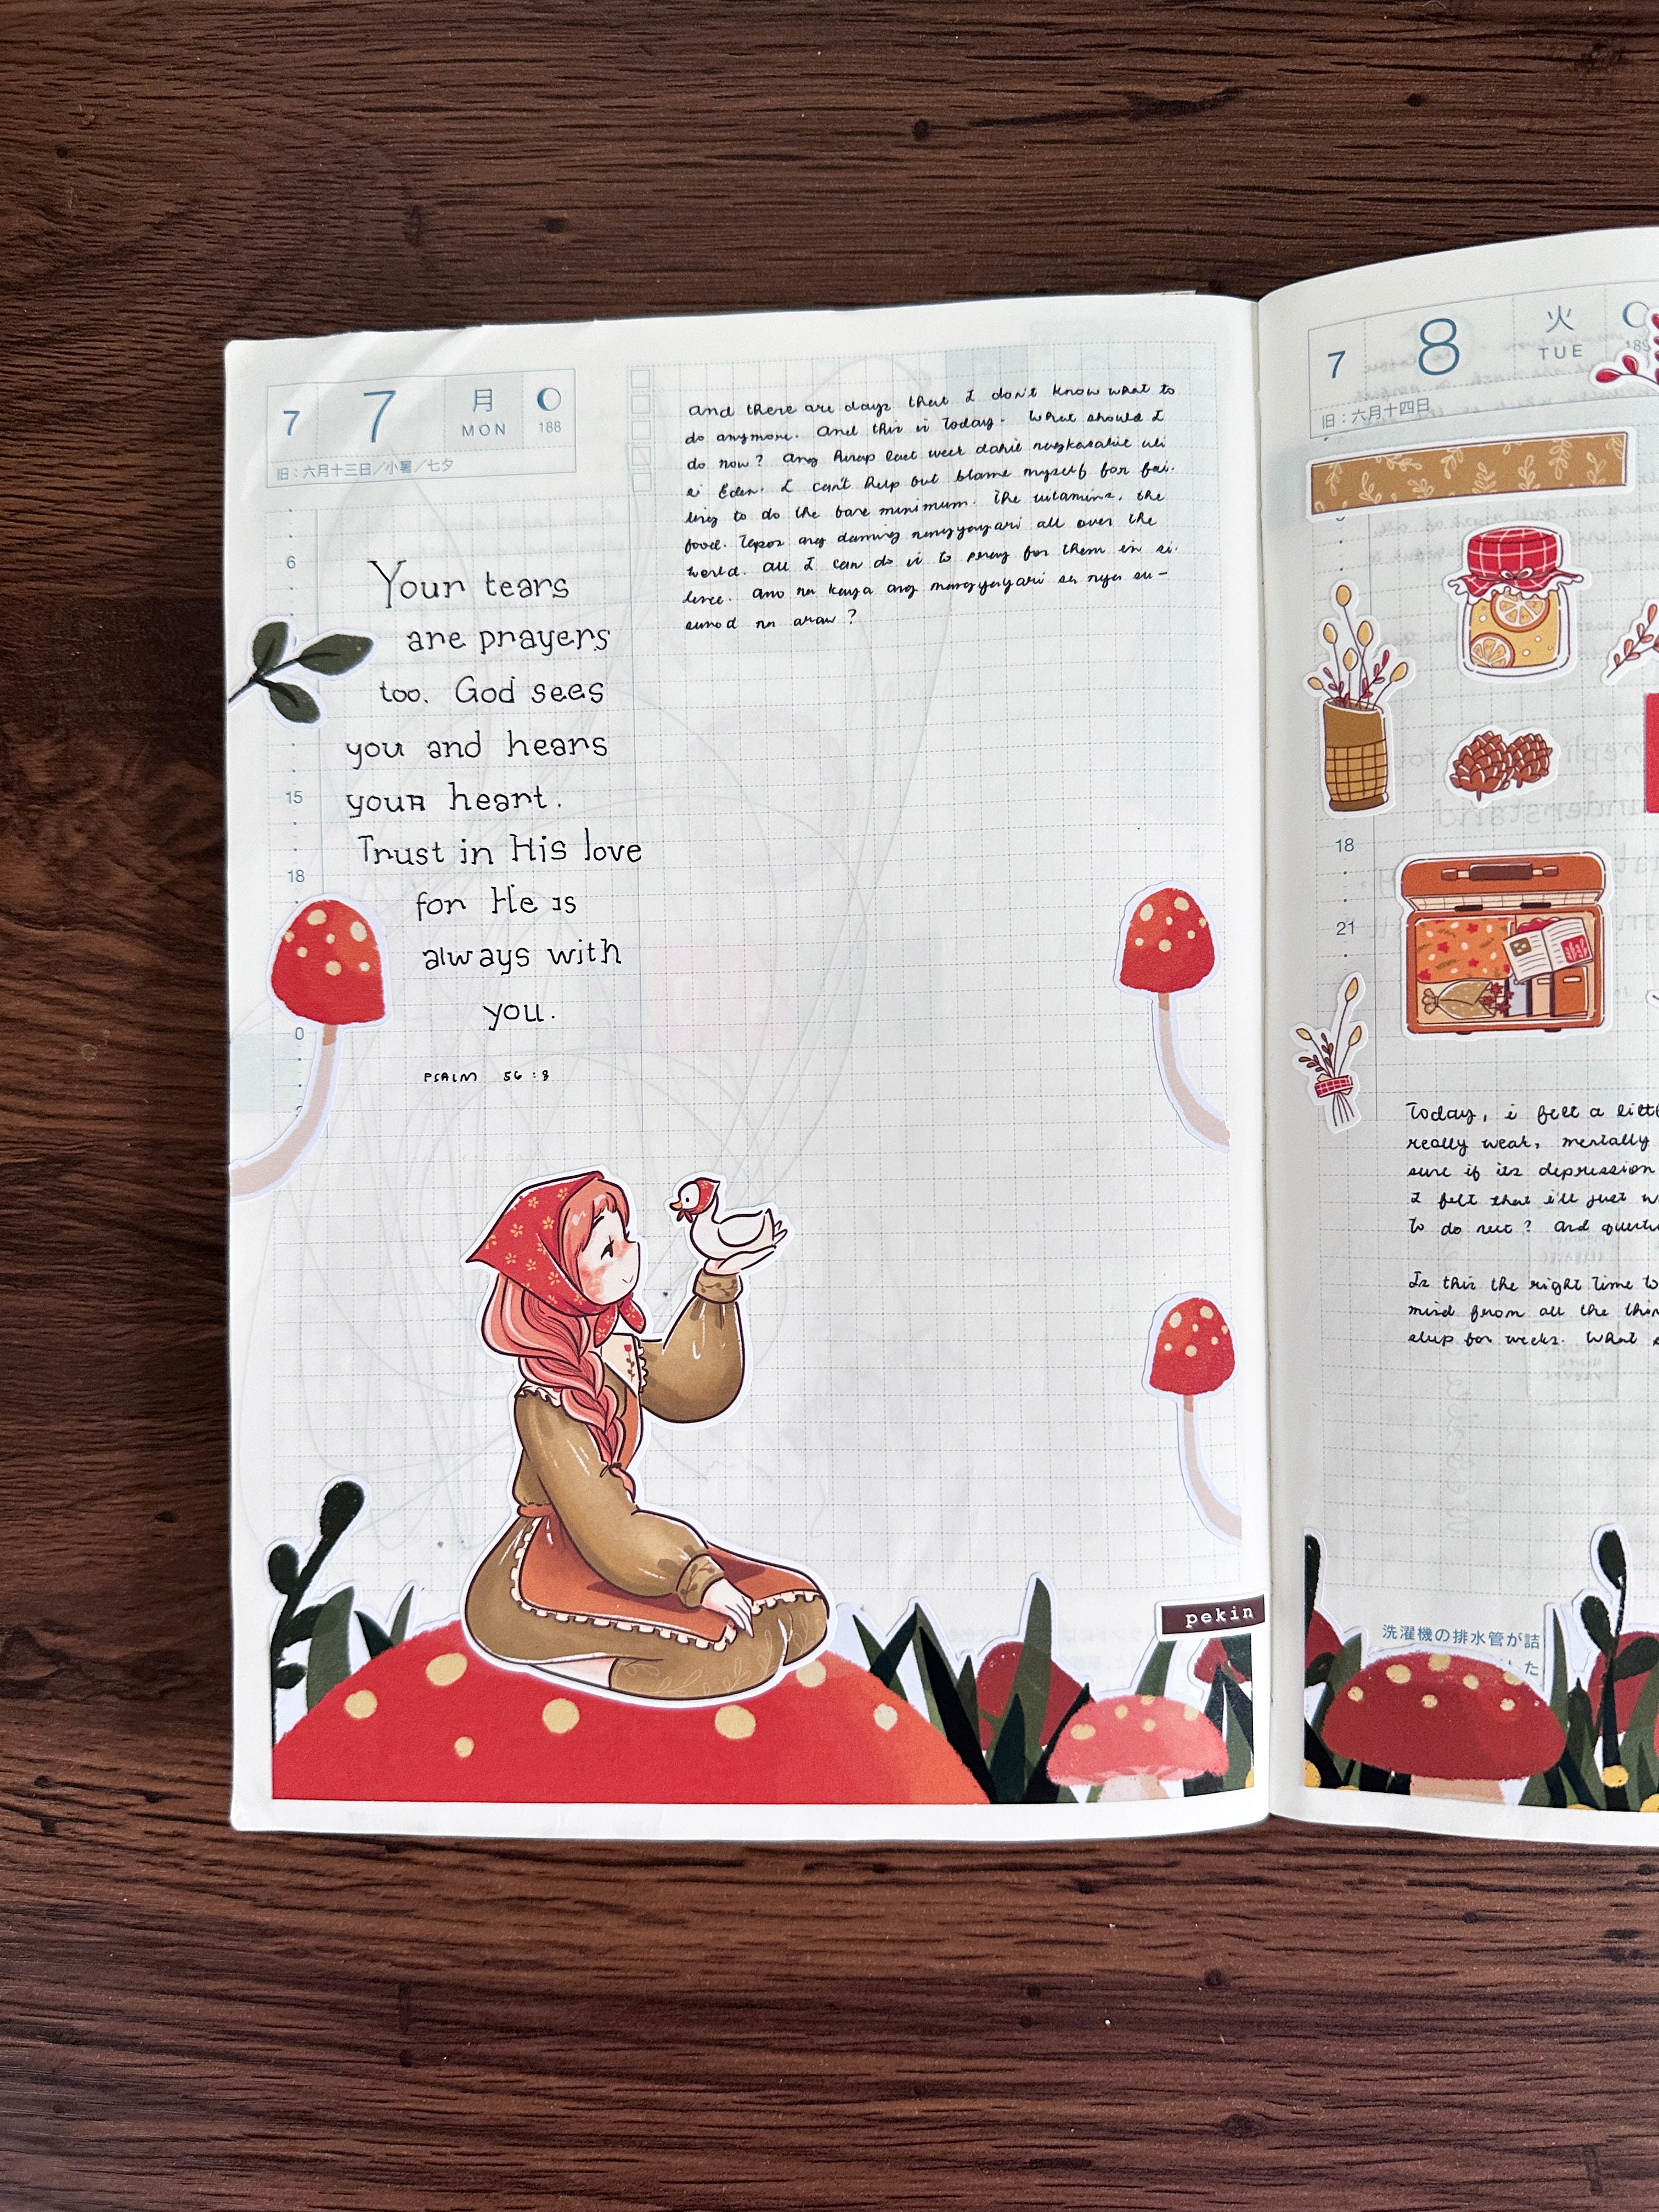 7 7 月 MON 188
旧：六月十三日／小暑／七夕
6
15
18
0
Your tears
are prayers
too. God sees
you and hears
your heart.
Trust in His love
for He is
always with
you.
PSALM 56:8
And there are days that I don't know what to
do anymore. And this is Today. What should I
do now? Ang hirap last week dahil nagkasakit uli
si Eden. I can't help but blame myself for fai-
ling to do the bare minimum. The vitamins, the
food. Tapos ang daming nangyayari all over the
world. All I can do is to pray for them in si-
lence. Ano na kaya ang mangyayari sa mga su-
sunod na araw?
pekin
7 8 火 TUE 189
旧：六月十四日
18
21
Today, i felt a littl
really weak, mentally
sure if its depression
I felt that i'll just w
to do next? And questi
Is this the right time to
mind from all the thin
sleep for weeks. What s
洗濯機の排水管が詰
た